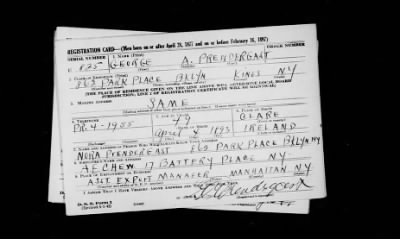 REGISTRATION CARD—(Men born on or after April 28, 1877 and on or before February 16, 1897)
SERIAL NUMBER 1. NAME (Print) ORDER NUMBER
U 825 GEORGE A. PRENDERGAST
2. PLACE OF RESIDENCE (Print)
863 PARK PLACE BKLYN KINGS NY
[THE PLACE OF RESIDENCE GIVEN ON THE LINE ABOVE WILL DETERMINE LOCAL BOARD
JURISDICTION; LINE 2 OF REGISTRATION CERTIFICATE WILL BE IDENTICAL]
3. MAILING ADDRESS
SAME
4. TELEPHONE 5. AGE IN YEARS 6. PLACE OF BIRTH
49 CLARE
PR. 4-1955 DATE OF BIRTH
April 1893 IRELAND
7. NAME AND ADDRESS OF PERSON WHO WILL ALWAYS KNOW YOUR ADDRESS
NORA PRENDERGAST 863 PARK PLACE BKLYN NY
8. EMPLOYER'S NAME AND ADDRESS
17 BATTERY PLACE NY
9. PLACE OF EMPLOYMENT OR BUSINESS
ASST EXPORT MANAGER MANHATTAN NY
I AFFIRM THAT I HAVE VERIFIED ABOVE ANSWERS AND THAT THEY ARE TRUE.
D. S. S. Form 1